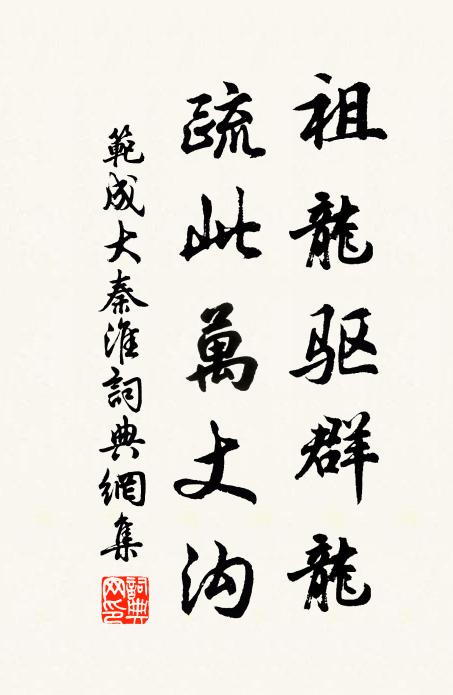 祖龍驱群龍
疏此萬丈沟
範成大秦淮詞典網集
詞典网印